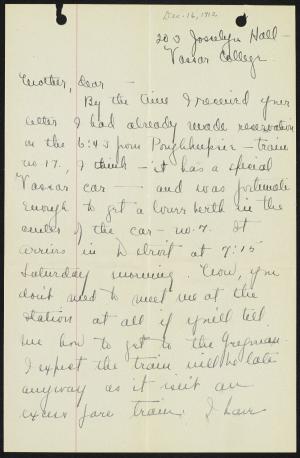 Dec. 16, 1912
203 Josselyn Hall -
Vassar College.
Mother, dear -
By the time I received your
letter I had already made reservation
on the 6:43 from Poughkeepsie - train
no. 17, I think - it has a special
Vassar car - and was fortunate
enough to get a lower berth in the
center of the car - no. 7. It
arrives in Detroit at 7:15
Saturday morning. Now, you
don't need to meet me at the
station at all if you'll tell
me how to get to the
I expect the train will be late
anyway as it isn't an
excess fare train. I have